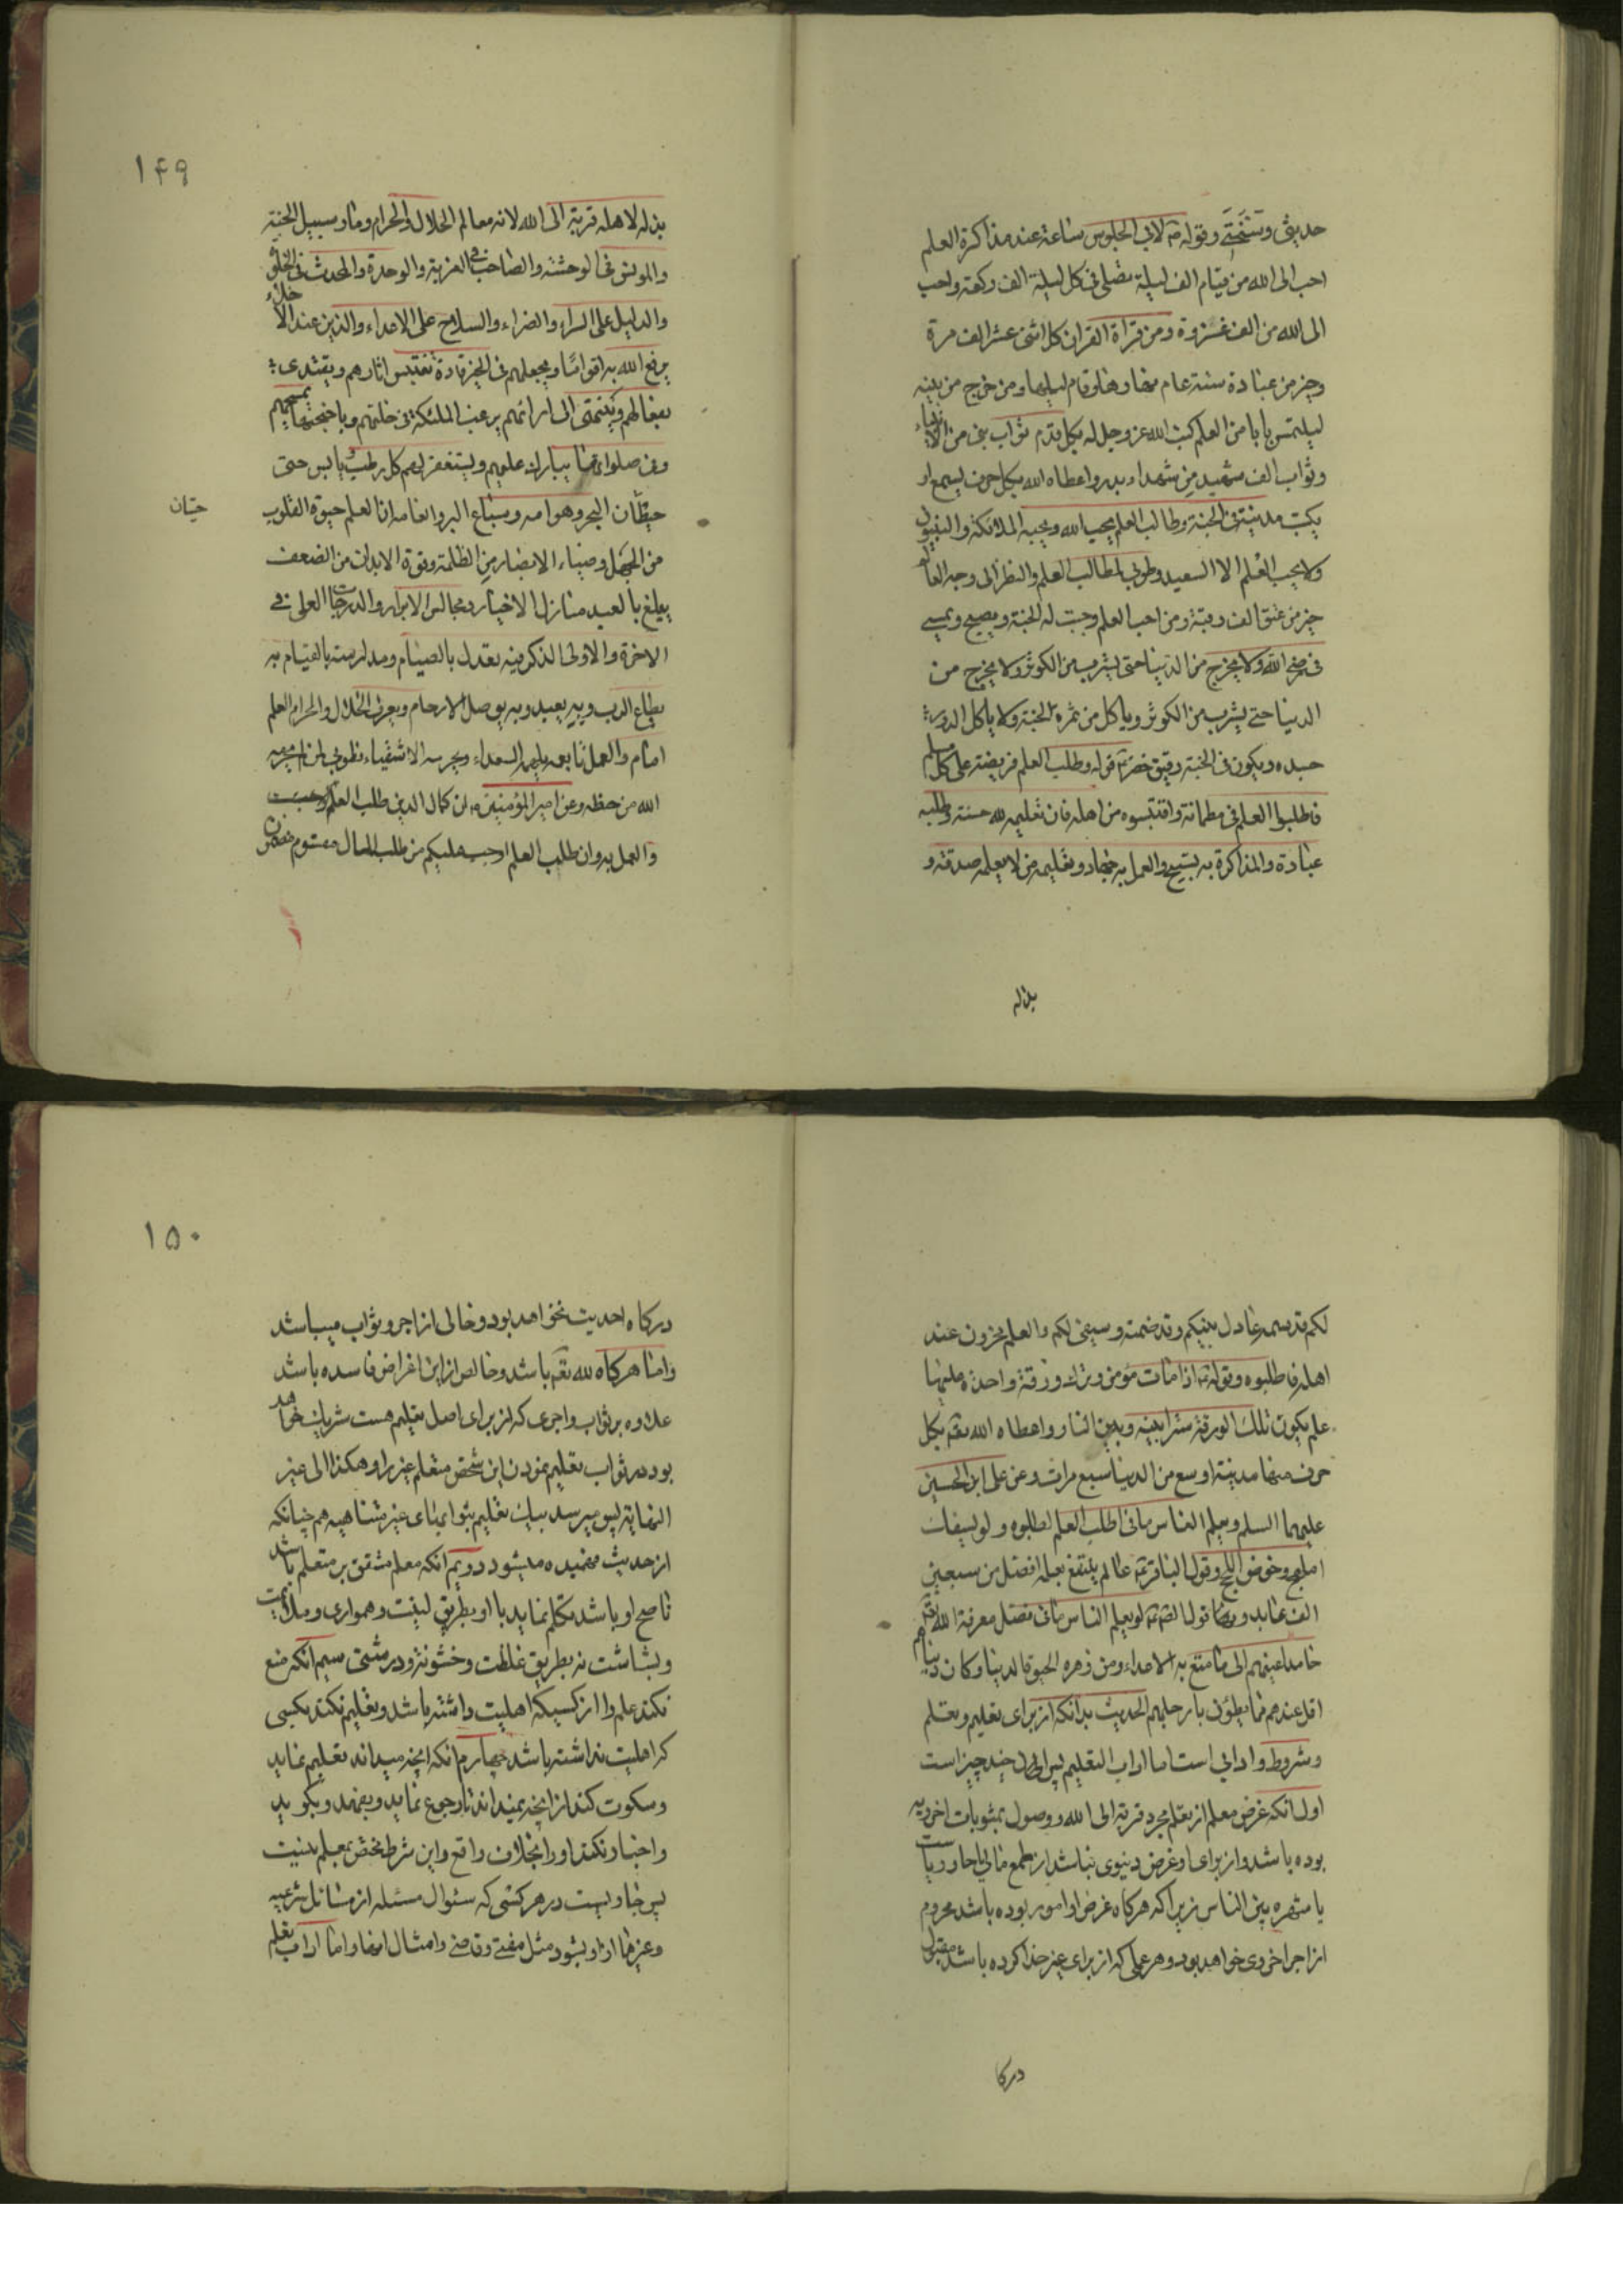 حدیثی وسنحتی وقوله ص لابی الجلوس ساعة عند مذاکرة العلم
احب الی الله من قیام الف لیلة تصلی فی کل لیلة الف رکعة واحب
الی الله من الف غزوة ومن قراة القران کل اثنی عشر الف مرة
وخیر من عبادة سنة عام نهارها وقام لیلها ومن خرج من بیته
لیلتمس بابا من العلم کتب الله عز وجل له بکل قدم ثواب نبی من الانبیاء
وثواب الف شهید من شهداء بدر واعطاه الله بکل حرف یسمع او
یکتب مدینة فی الجنة وطالب العلم یحبه الله ویحبه الملائکة والنبیون
ولا یحب العلم الا السعید وطوبی لطالب العلم والنظر الی وجه العالم
خیر من عتق الف رقبة ومن احب العلم وجبت له الجنة ویصبح ویمسی
فی رضی الله ولا یخرج من الدینا حتی یشرب من الکوثر ولا یخرج من
الدینا حتی یشرب من الکوثر ویاکل من ثمرة الجنة ولا یاکل الدود
جسده ویکون فی الجنة رفیق خضر قوله وطلب العلم فریضة علی کل مسلم
فاطلبوا العلم فی مظانه واقتبسوه من اهله فان تعلیمه لله حسنة وطلبه
عبادة والمذاکرة به تسبیح والعمل به جهاد وتعلیمه من لا یعلمه صدقة و
بذله
۱۴۹
بذله لاهله قربة الی الله لانه معالم الحلال والحرام ومنار سبیل الجنة
والمونس فی الوحشة والصاحب فی الغربة والوحدة والمحدث فی الخلوة
والدلیل علی السراء والضراء والسلاح علی الاعداء والذین عند الاخلاء
یرفع الله به اقواما ویجعلهم فی الخیر قادة تقتبس اثارهم ویقتدی
بفعالهم وینتهی الی ارائهم یرغب الملئکة فی خلتهم وباجنحتها یمسحهم
وفی صلواتها یبارک علیهم ویستغفر لهم کل رطب ویابس حتی
حیطان البحر وهوامه وسباع البر وانعامه ان العلم حیوة القلوب
حیتان
من الجهل وضیاء الابصار من الظلمة وقوة الابدان من الضعف
یبلغ بالعبد منازل الاخیار ومجالس الابرار والدرجات العلی فی
الاخرة والاولی الذکر فیه یعدل بالصیام ومدارسته بالقیام به
یطاع الرب وبه یعبد وبه یوصل الارحام ویعرف الحلال والحرام العلم
امام والعمل تابعه یلهمه السعداء ویحرمه الاشقیاء فطوبی لمن لم یحرمه
الله من حظه وعن امیر المؤمنین ع ان کمال الدین طلب العلم
والعمل به وان طلب العلم اوجب علیکم من طلب المال مقسوم مضمون
لکم قد قسمه عادل بینکم وقد ضمنه وسیفی لکم والعلم مخزون عند
اهله فاطلبوه وبقوله ع اذا مات مؤمن وترک ورقة واحدة علیها
علم یکون تلک الورقة سترا بینه وبین النار واعطاه الله تع بکل
حرف منها مدینة اوسع من الدینا سبع مرات وعن علی ابن الحسین
علیهما السلم ویعلم الناس ما فی اطلب العلم لطلبوه ولو بسفک
المهج وخوض اللجج وقول الباقر ع عالم ینتفع بعلمه افضل من سبعین
الف عابد وبما قول الص ع لو یعلم الناس ما فی فضل معرفة الله تع
ما مدا عینهم الی ما متع به الاعداء ومن زهرة الحیوة الدینا وکان دنیاهم
اقل عندهم مما یطئون بارجلهم الحدیث بدانکه از برای تعلیم وتعلم
وشروط وادابی است اما اداب التعلیم پس ان چند چیز است
اول انکه غرض معلم از تعلم مجرد قربة الی الله ووصول بمثوبات اخرویه
بوده باشد واز برای او غرض دنیوی نباشد از طمع مالی یا جاه وریاست
یا شهره بین الناس زیرا که هرکاه غرض او امور بوده باشد محروم
از اجر اخروی خواهد بود وهر عملی که از برای غیر خدا کرده باشد مقبول
درکا
۱۵۰
درکاه احدیت نخواهد بود وخالی از اجر وثواب میباشد
واما هرکاه لله تع باشد وخالص از این اغراض فاسده باشد
علاوه بر ثواب واجری که از برای اصل تعلیم هست شریک خواهد
بود در ثواب تعلیم نمودن این شخص متعلم غیر را وهکذا الی غیر
النهایة پس میرسد بیک تعلیم بثوابهای غیر متناهیه هم چنانکه
از حدیث فهمیده میشود دویم انکه معلم مشفق بر متعلم باشد
ناصح او باشد تکلم نماید با او بطریق لینت وهمواری وملایمت
وبشاشت نه بطریق غلظت وخشونة ودرشتی سیم انکه منع
نکند علم را از کسیکه اهلیت داشته باشد وتعلیم نکند بکسی
که اهلیت نداشته باشد چهارم انکه انچه میداند تعلیم نماید
وسکوت کند از انچه نمیداند تا رجوع نماید وبفهمد وبکوید
واخبار نکند او را بخلاف واقع واین شرط مختص بمعلم نیست
پس جاریست در هر کسی که سئوال مسئله از مسائل شرعیه
وغیرها از او بشود مثل مفتی وقاضی وامثال انها واما اداب تعلم